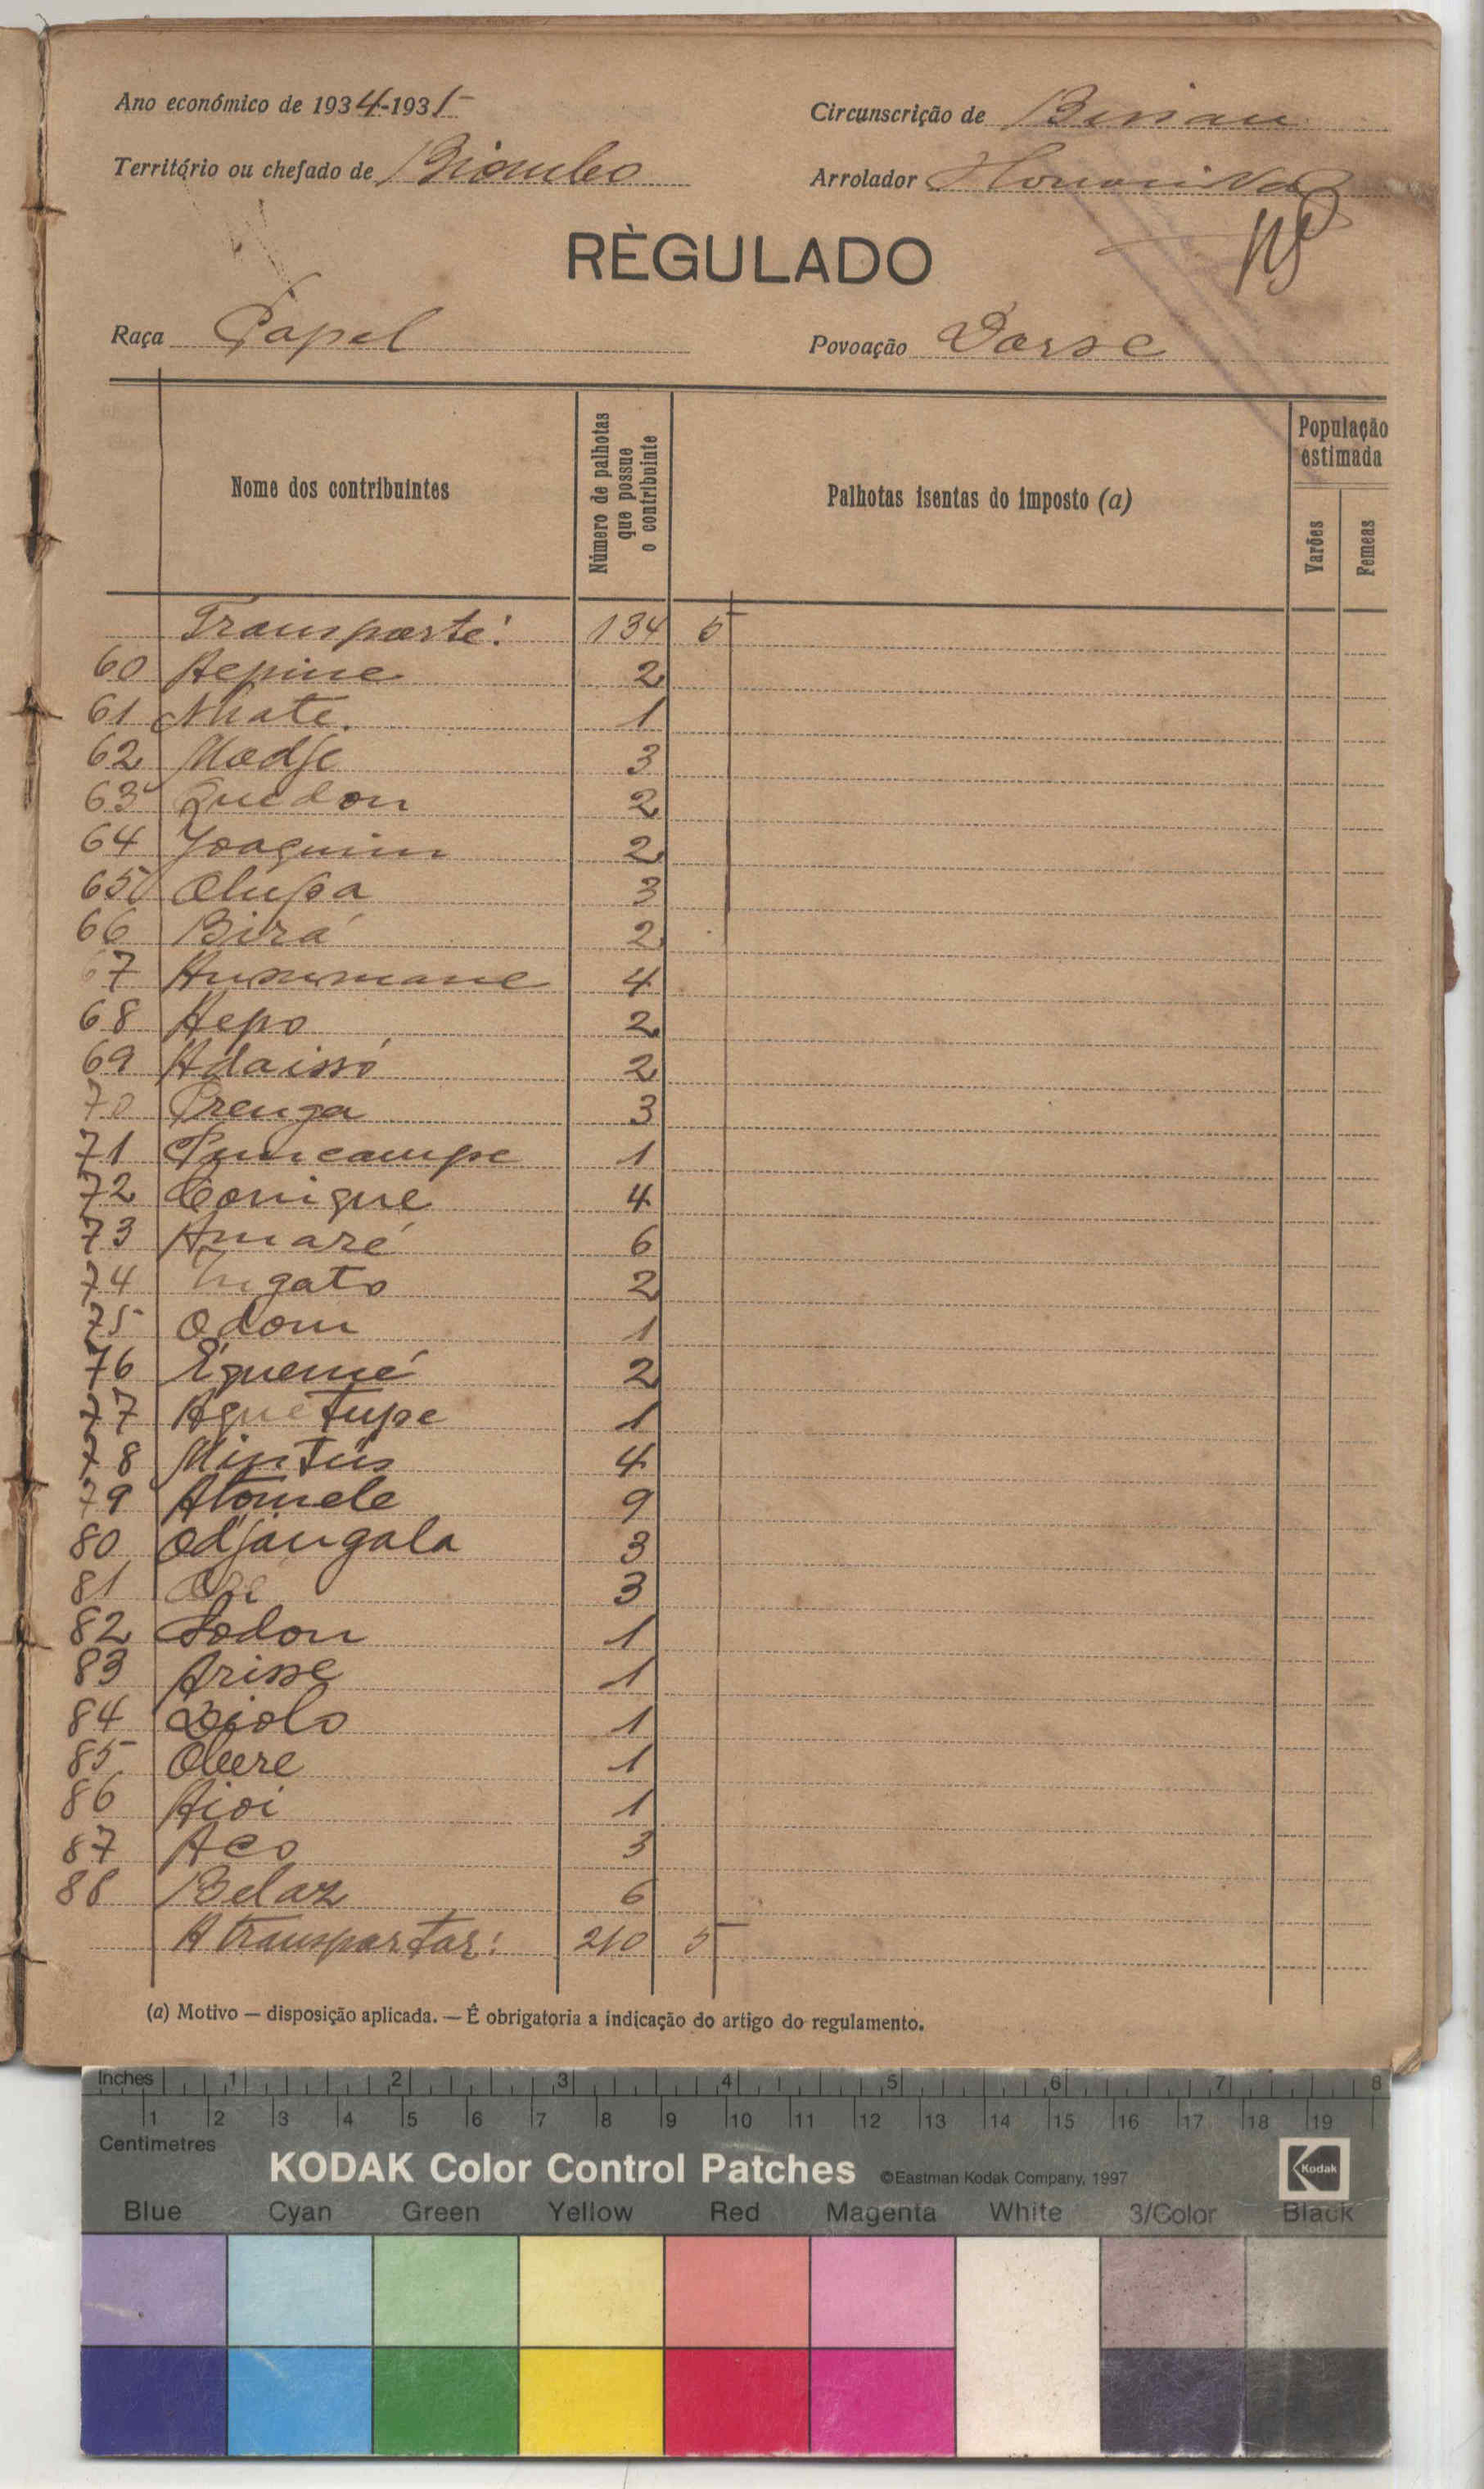 Ano económico de 1934-1935
Circunscrição de Bissau
Território ou chefado de Biombo
Arrolador
RÈGULADO
Raça Papel
Povoação Dorse
Nome dos contribuintes
Número de palhotas que possue o contribuinte
Palhotas isentas do imposto (a)
População estimada
Varões
Femeas
Transporte: 134 5
60 Aepine 2
61 Nhate 1
62 Madje 3
63 Quedon 2
64 Joaquim 2
65 Olufa 3
66 Birá 2
67 4
68 Aepo 2
69 Adaissó 2
70 Prenga 3
71 Puncampe 1
72 Conigue 4
73 Amaré 6
74 Ingato 2
75 Odom 1
76 Iquemé 2
77 Aguetupe 1
78 Mintús 4
79 Atomele 9
80 Odjangala 3
81 3
82 Sodon 1
83 Arisse 1
84 Djolo 1
85 Obere 1
86 Aioi 1
87 Aco 3
88 Belaz 6
A transportar: 210 5
(a) Motivo — disposição aplicada. — É obrigatoria a indicação do artigo do regulamento.
Inches 1 2 3 4 5 6 7 8
1 2 3 4 5 6 7 8 9 10 11 12 13 14 15 16 17 18 19
Centimetres
KODAK Color Control Patches ©Eastman Kodak Company, 1997 Kodak
Blue Cyan Green Yellow Red Magenta White 3/Color Black